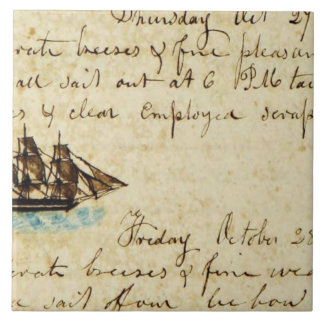 Thursday Oct 27
erate breezes & fine pleasan
all sail out at 6 PM tac
s & clear Employed scrap
Friday October 28
erate breezes & fine wea
sail off our lee bow